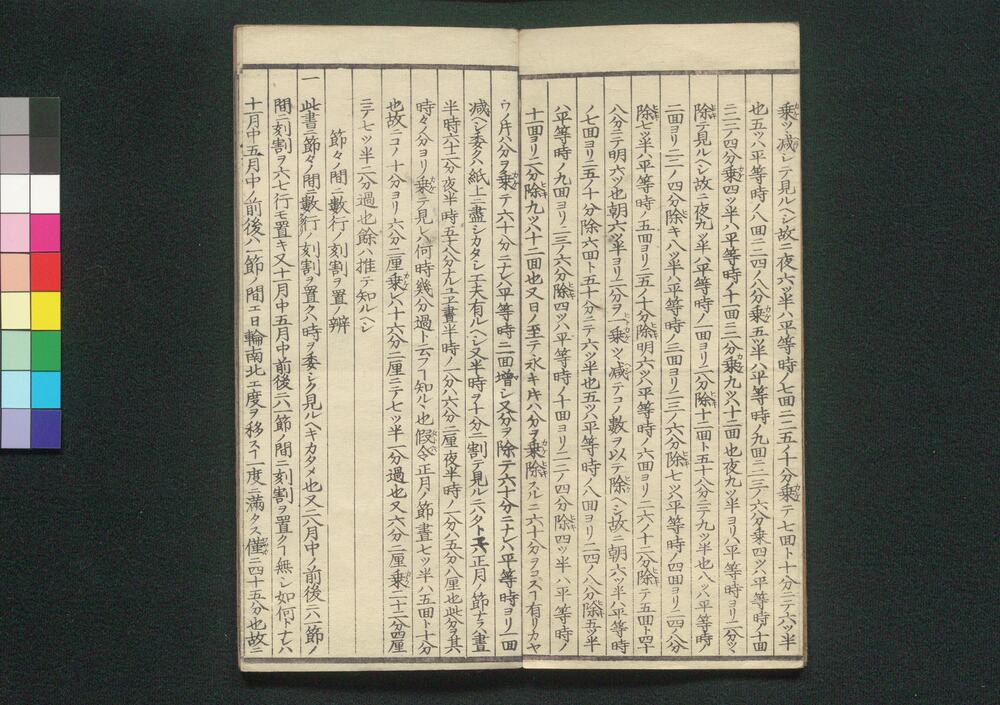 乗ツ減シテ見ルヘシ故ニ夜六ツ半ハ平等時ノ七面ニ二五ノ十分乗テ七面ト十分ニテ六ツ半
也五ツハ平等時ノ八面ニ二四ノ八分乗五ツ半ハ平等時ノ九面ニ二三ノ六分乗四ツハ平等時ノ十面
ニ二二ノ四分乗四ツ半ハ平等時ノ十一面ニ二分乗九ツハ十二面也夜九ツ半ヨリハ平等時ヨリ二分ツヽ
除テ見ルヘシ故ニ夜九ツ半ハ平等時ノ一面ヨリ二分除十二面ト五十八分ニテ九ツ半也八ツハ平等時ノ
二面ヨリ二二ノ四分除キ八ツ半ハ平等時ノ三面ヨリ二三ノ六分除七ツハ平等時ノ四面ヨリ二四ノ八分
除七ツ半ハ平等時ノ五面ヨリ二五ノ十分除明六ツハ平等時ノ六面ヨリ二六ノ十二分除テ五面ト四十
八分ニテ明六ツ也朝六ツ半ヨリ二分ヲ一乗ツヽ減テコノ數ヲ以テ除ヘシ故ニ朝六ツ半ハ平等時
ノ七面ヨリ二五ノ十分除六面ト五十分ニテ六ツ半也五ツハ平等時ノ八面ヨリ二四ノ八分除五ツ半
ハ平等時ノ九面ヨリ二三ノ六分除四ツハ平等時ノ十面ヨリ二二ノ四分除四ツ半ハ平等時ノ
十一面ヨリ二分除九ツハ十二面也又日ノ至テ永キ片ハ分ヲ乗除スルニ六十分ヲコスヿ有リカヤ
ウノ片ハ分ヲ乗テ六十分ニナレハ平等時ニ一面増シ又分ヲ除テ六十分ニナレハ平等時ヨリ一面
減ヘシ委クハ紙上ニ盡シカタシ工夫有ルヘシ又半時ヲ十分ニ割テ見ルニハタトヘハ正月ノ節ナラハ晝
半時六十二分夜半時五十八分ナルユヱ晝半時ノ一分ハ六分二厘夜半時ノ一分ハ五分八厘也此分ヲ其
時々ノ分ヨリ乗テ見レハ何時幾分過ト云フヿ知ルヽ也假令正月ノ節晝七ツ半ハ五面ト十分
也故ニコノ十分ヨリ六分二厘乗レハ十六分二厘ニテ七ツ半一分過也又六分二厘乗レハ二十二分四厘
ニテ七ツ半二分過也餘ハ推テ知ルヘシ
節々ノ間ニ數行ノ刻割ヲ置辨
一 此書ニ節々ノ間ニ數行ノ刻割ヲ置クハ時ヲ委シク見ルヘキカタメ也又二八月中ノ前後ニハ一節ノ
間ニ刻割ヲ六七行モ置キ又十一月中五月中前後ニハ一節ノ間ニ刻割ヲ置クヿ無シ如何トナレハ
十一月中五月中ノ前後ハ一節ノ間エ日輪南北エ度ヲ移スヿ一度ニ満タス僅ニ四十五分也故ニ